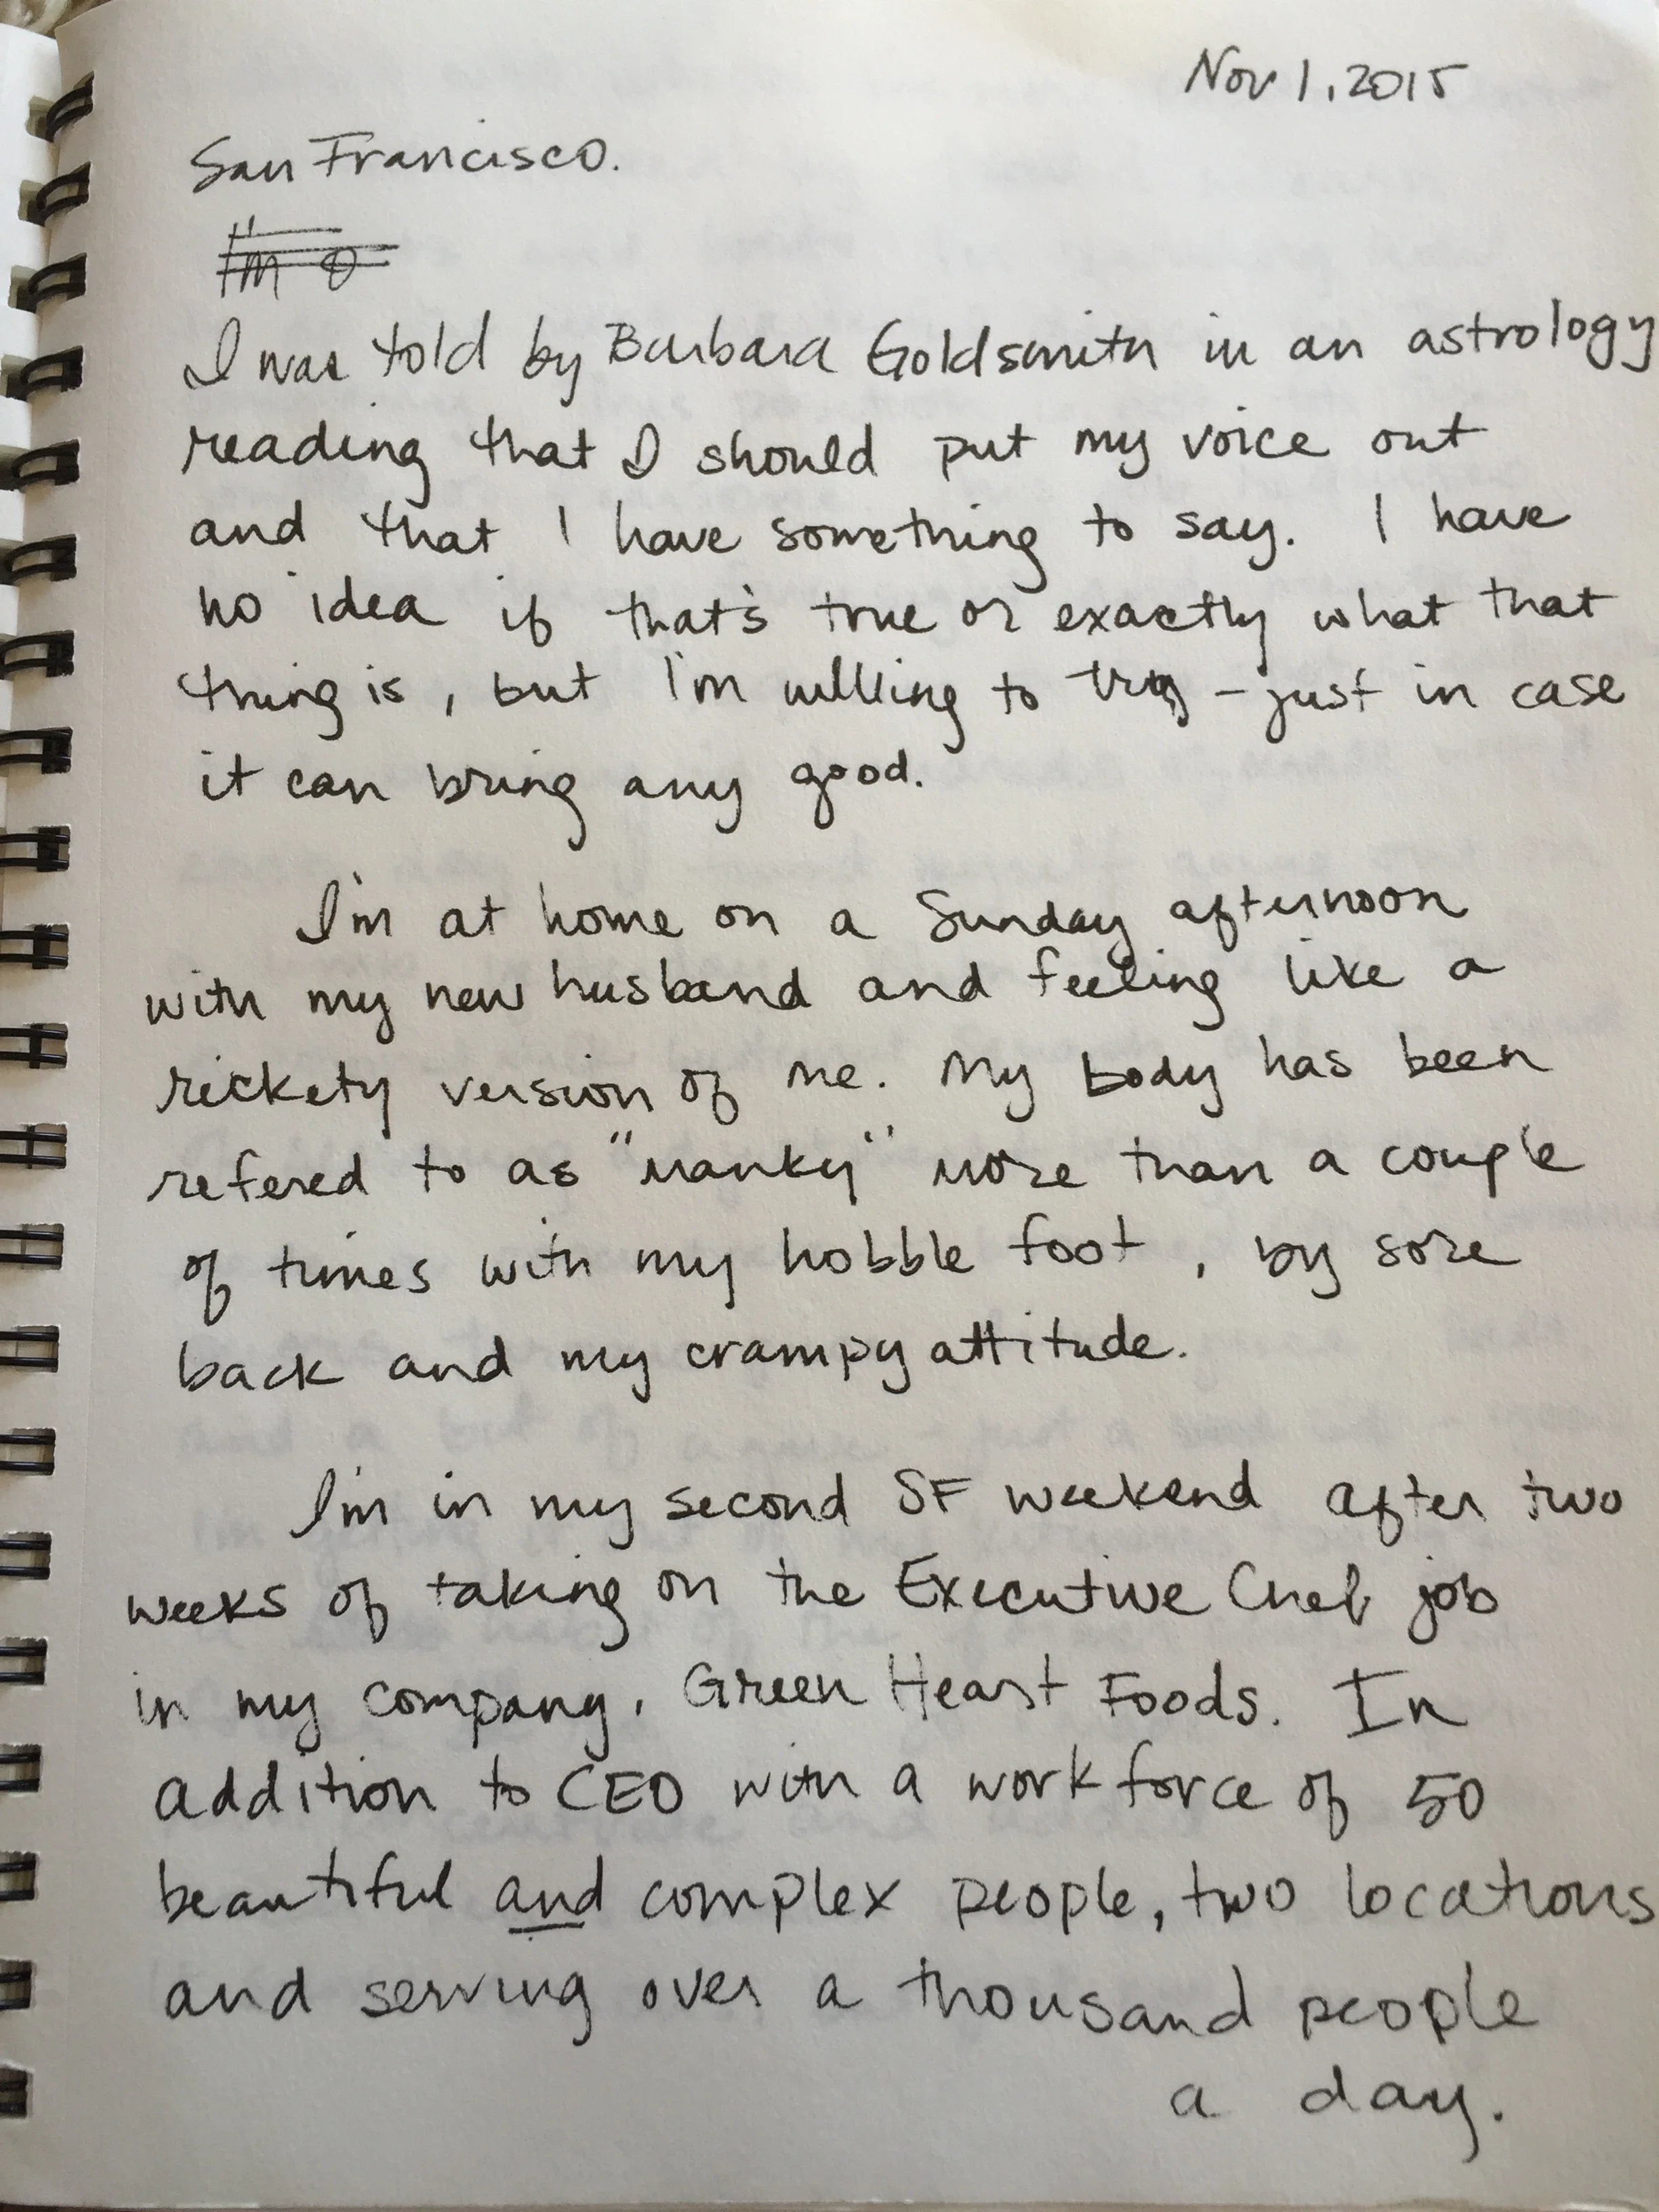 Nov 1, 2015
San Francisco.
I'm
I was told by Barbara Goldsmith in an astrology
reading that I should put my voice out
and that I have something to say. I have
no idea if that's true or exactly what that
thing is, but I'm willing to try – just in case
it can bring any good.
I'm at home on a Sunday afternoon
with my new husband and feeling like a
rickety version of me. My body has been
refered to as "manky" more than a couple
of times with my hobble foot, by sore
back and my crampy attitude.
I'm in my second SF weekend after two
weeks of taking on the Executive Chef job
in my company, Green Heart Foods. In
addition to CEO with a workforce of 50
beautiful and complex people, two locations
and serving over a thousand people
a day.